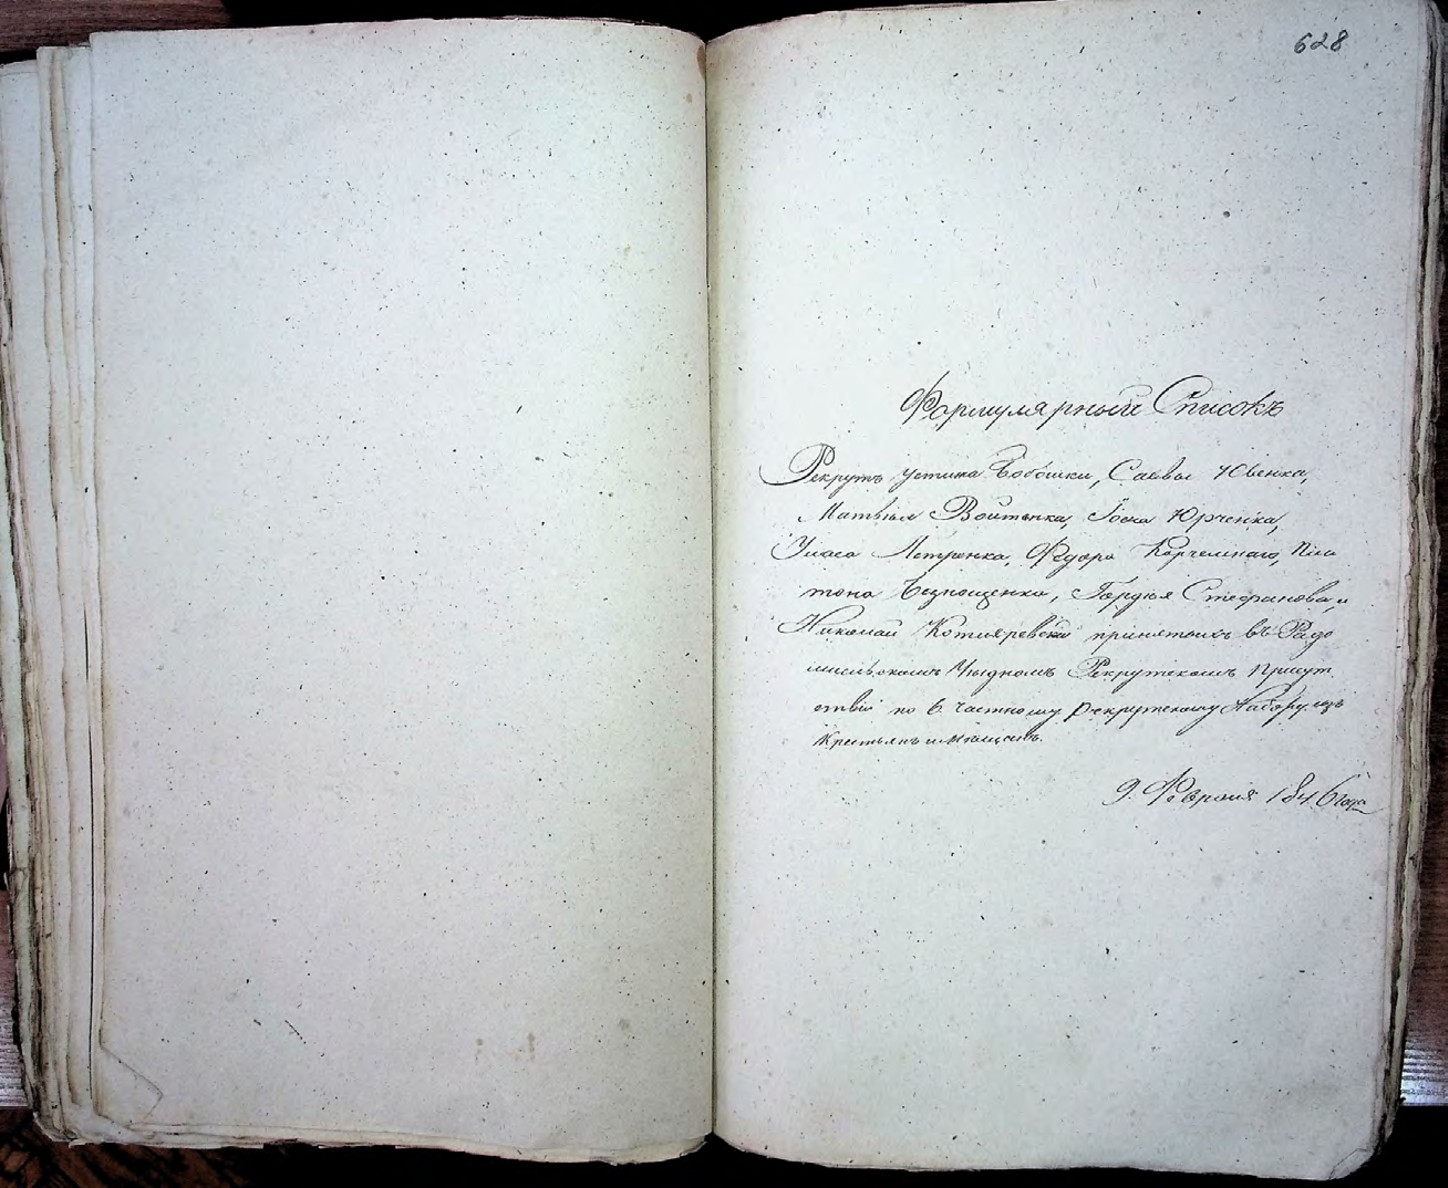 628
Формулярный Списокъ
Рекрутъ Устина Бобошки, Саввы Ювенка,
Матвія Войтенка, Іосиа Юрченка,
Уласа Петренка, Федора Корчемнаго, Пла
тона Безпощенка, Гордея Стефанова, и
Николая Котляревскаго принятыхъ въ Радо
мысльскомъ Уѣздномъ Рекрутскомъ Присут
ствіи по 6 частному рекрутскому Набору изъ
Крестьянъ и мѣщанъ.
9. Февраля 1846 года